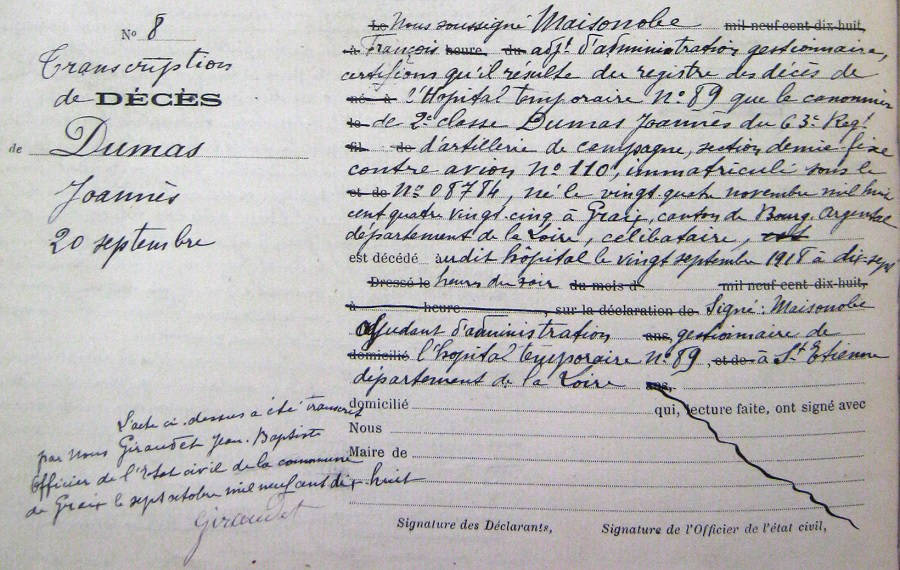 N° 8
Transcription
de DÉCÈS
de Dumas
Joannès
20 septembre
Le Nous soussigné Maisonobe mil neuf cent dix-huit,
à François heure, du adjt d'administration gestionnaire,
certifions qu'il résulte du registre des décès de
né à l'Hopital temporaire N° 89 que le canonnier
le de 2e classe Dumas Joannès du 63e Regt
fil de d'artillerie de campagne, section demie-fixe
contre avion N° 110, immatriculé sous le
et de N° 08784, né le vingt quatre novembre mil huit
cent quatre vingt-cinq à Graix, canton de Bourg Argental
département de la Loire, célibataire, est
est décédé audit hôpital le vingt septembre 1918 à dix-sept
Dressé le heures du soir du mois d mil neuf cent dix-huit,
à heure , sur la déclaration de Signé : Maisonobe
adjudant d'administration ans, gestionnaire de
domicilié l'hopital temporaire N° 89, et de à St Etienne
département de la Loire ans,
domicilié qui, lecture faite, ont signé avec
Nous
Maire de
Signature des Déclarants, Signature de l'Officier de l'état civil,
L'acte ci-dessus a été transcrit
par nous Giraudet Jean-Baptiste
Officier de l'Etat civil de la commune
de Graix le sept octobre mil neuf cent dix huit
Giraudet